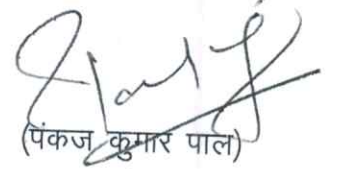 (पंकज कुमार पाल)